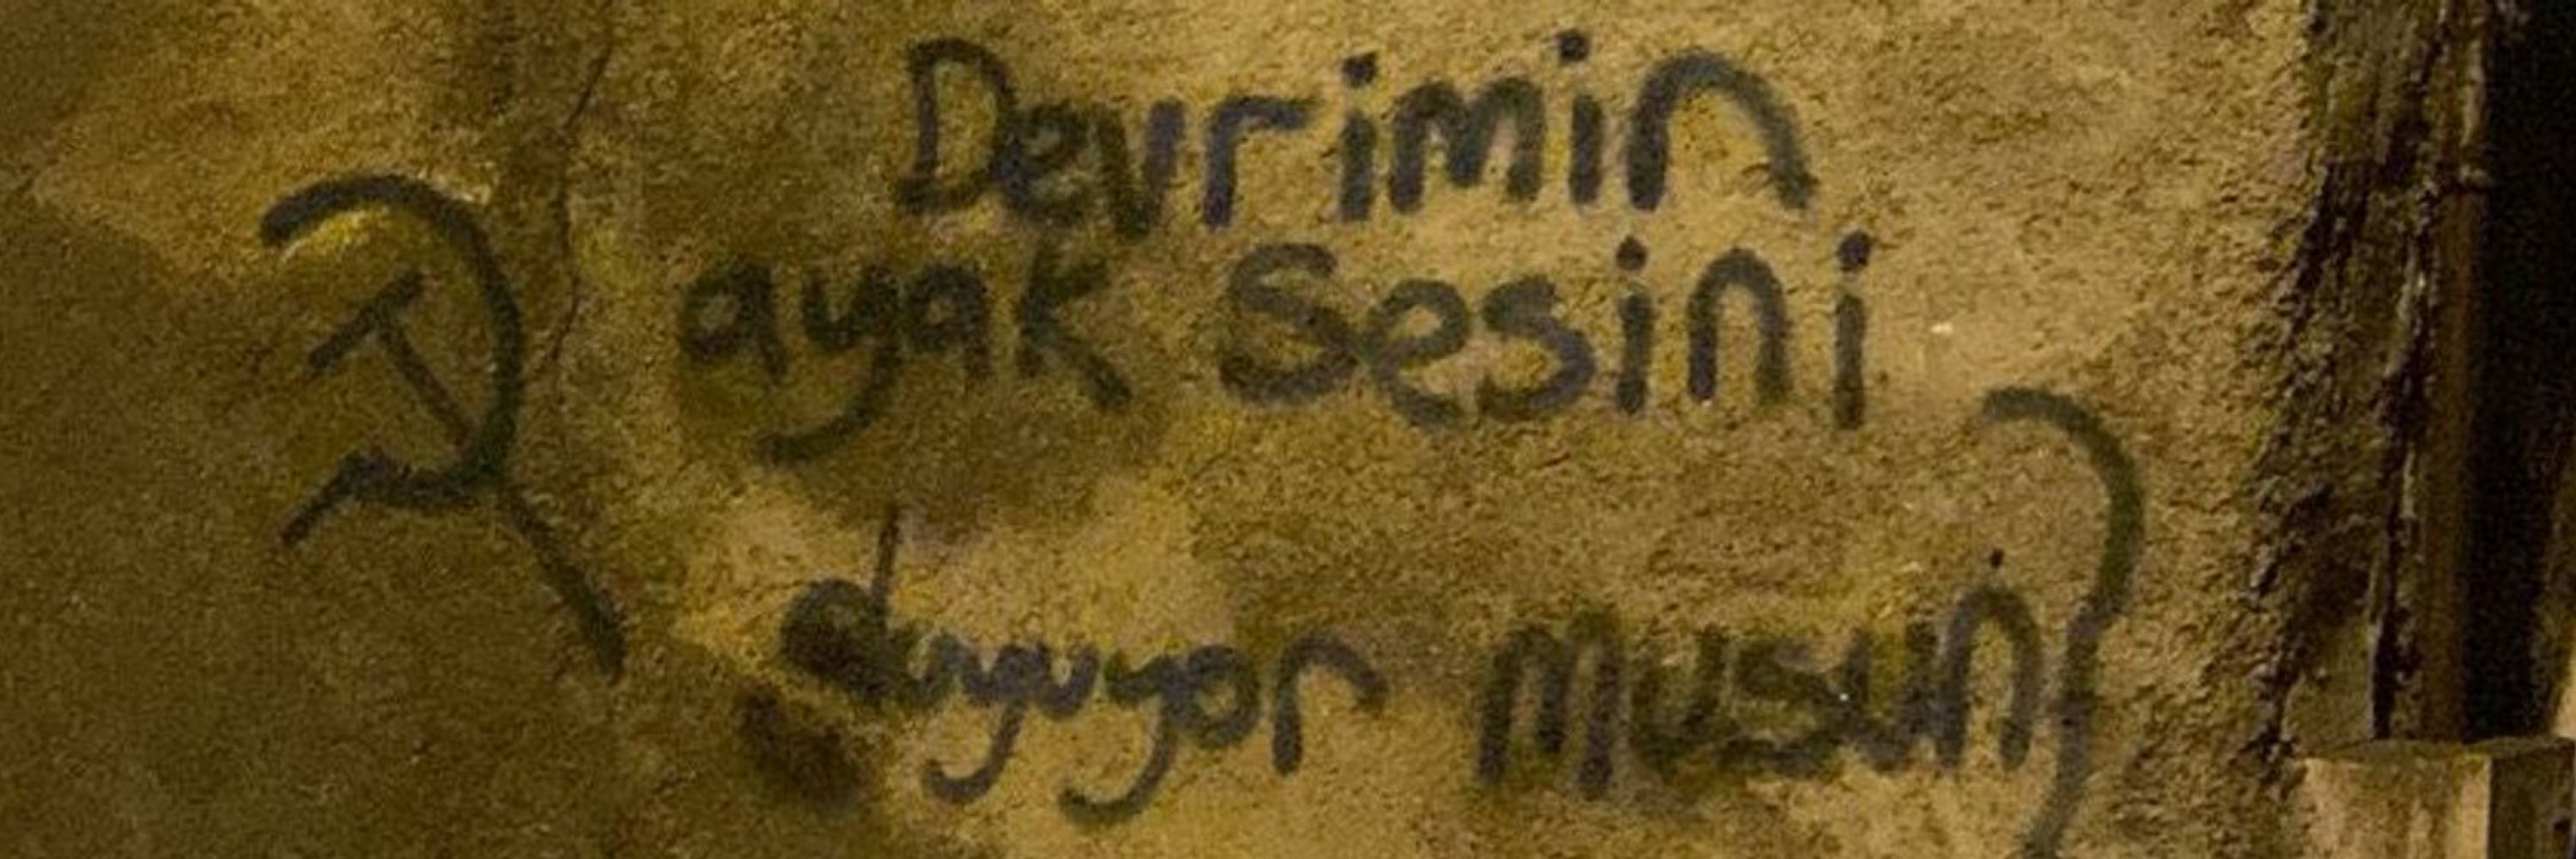 Devrimin
ayak Sesini
duyuyor musun?